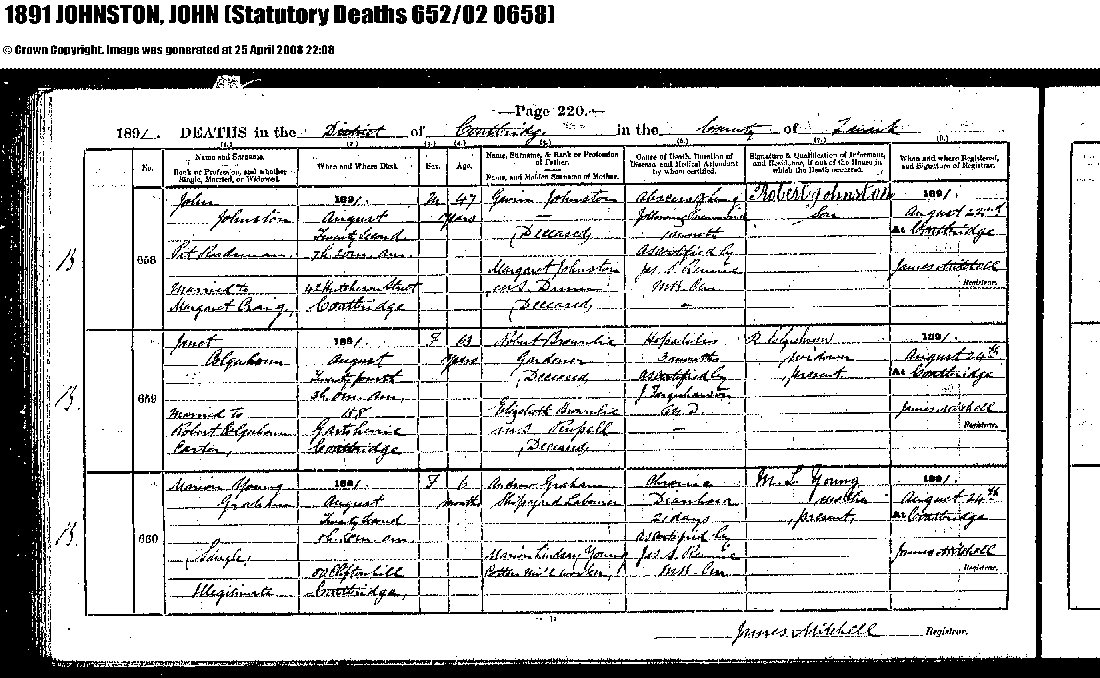 1891 JOHNSTON, JOHN (Statutory Deaths 652/02 0658)
© Crown Copyright. Image was generated at 25 April 2008 22:08
—Page 220.—
1891. DEATHS in the District of Coatbridge in the County of Lanark
(1.) (2.) (3.) (4.) (5.) (6.) (7.) (8.)
No.
Name and Surname.
Rank or Profession, and whether
Single, Married, or Widowed.
When and Where Died.
Sex.
Age.
Name, Surname, & Rank or Profession
of Father.
Name, and Maiden Surname of Mother.
Cause of Death, Duration of
Disease, and Medical Attendant
by whom certified.
Signature & Qualification of Informant,
and Residence, if out of the House in
which the Death occurred.
When and where Registered,
and Signature of Registrar.
658
John
Johnston
Married to
Margaret Craig
1891.
August
Twenty Second
7h. a.m.
42 Street
Coatbridge
M
47
years
Gavin Johnston
(Deceased)
Margaret Johnston
m.s.
(Deceased)
Abscess of Lung
following
as certified by
Jas. Rennie
Robert Johnston
Son
1891.
August 22nd
At Coatbridge
James Mitchell
Registrar.
659
Janet
Colquhoun
Married to
Robert Colquhoun
Carter,
1891.
August
Twenty fourth
3h. 0m. a.m.
Gartsherrie
Coatbridge
F
63
years
Robert Brownlie
Gardener
(Deceased)
Elizabeth Brownlie
m.s. Russell
(Deceased)
Hepatitis
3 months
as certified by
J Farquharson
R. Colquhoun
widower
present
1891.
August 24th
At Coatbridge
James Mitchell
Registrar.
660
Marion Young
Graham
Single
Illegitimate
1891.
August
a.m.
Cliftonhill
Coatbridge
F
6
months
Andrew Graham
Shipyard Labourer
Marion Lindsay Young
Cotton Mill worker
Chronic
Diarrhoea
21 days
as certified by
Jas. Rennie
M. L. Young
mother
present
1891.
August 24th
At Coatbridge
James Mitchell
Registrar.
James Mitchell Registrar.